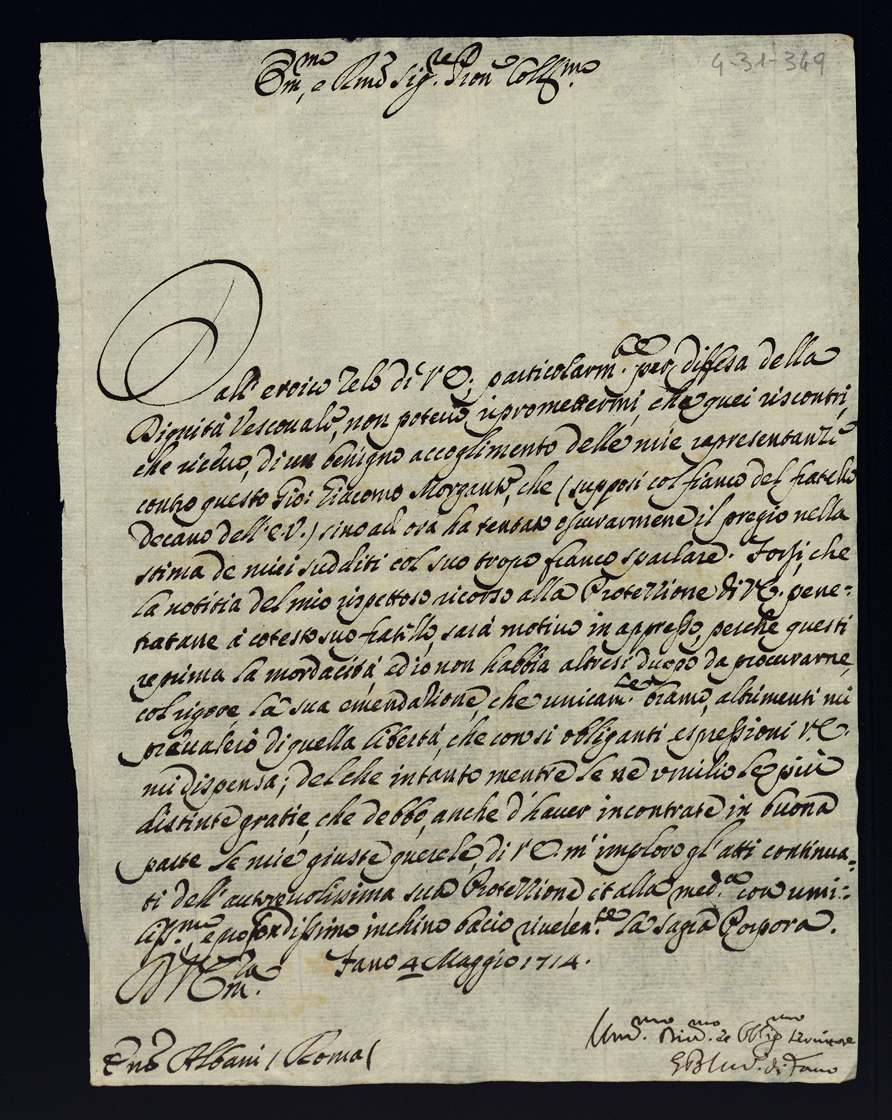 Em.mo, e Rmo Sig.re Pron Coll.mo
4-31-349
Dall'eroico Zelo di V.E. particolarm.te per diffesa della
Dignità Vescovale, non potevo ripromettermi, che quei riscontri,
che ricevo, di un benigno accoglimento delle mie rapresentanze
contro questo Gio: Giacomo Morganti, che (supposi col fianco del fratello
Decano dell'E.V.) sino ad ora ha tentato oscurarmene il pregio nella
stima de miei sudditi col suo tropo franco sparlare. Forsi, che
la notitia del mio rispettoso ricorso alla Protettione di V.E. pene=
tratane à cotesto suo fratello, sarà motivo in appresso, perche questi
reprima la mordacità, ed io non habbia altresi duopo da procurarne,
col rigore la sua emendatione, che unicam.te bramo, altrimenti mi
prevalerò di quella libertà, che con si obliganti espressioni V.E.
mi dispensa; del che intanto mentre le ne umilio le più
distinte gratie, che debbo, anche d'haver incontrate in buona
parte le mie giuste querele, di V.E. m'imploro gl'atti continua=
ti dell'autorevolissima sua Protettione, et alla med.ma con umi=
liss.mo, e profondissimo inchino bacio riveren.te la sagra Porpora.
D V. Em.za Fano 4 Maggio 1714.
Um.mo Div.mo et Oblig.mo Servitore
Vesc.o di Fano
Em.o Albani / Roma (